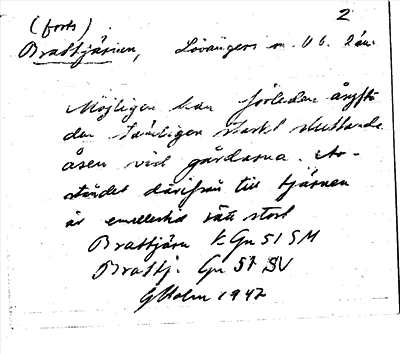 (forts) 2
Brattjärnen, Lövångers sn. Vb. Län.
Möjligen kan förleden åsyfta
den tämligen starkt sluttande
åsen vid gårdarna. Av-
ståndet därifrån till tjärnen
är emellertid rätt stort
Brattjärn t. Gn 51 SM
Brattj. Gn 51 SV
G Holm 1942